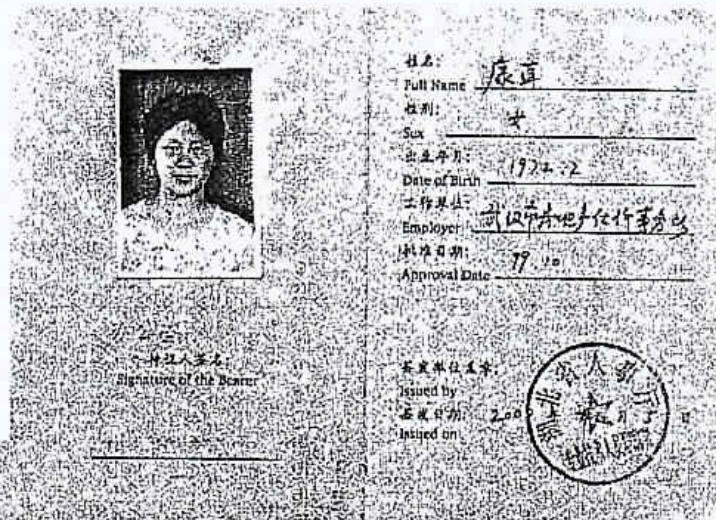 持证人签名:
Signature of the Bearer
姓名:
Full Name 康
性别:
Sex 女
出生年月:
Date of Birth 1972.2
工作单位:
Employer 武汉市房地产估价事务所
批准日期:
Approval Date 99.10
签发单位盖章:
Issued by
签发日期: 200
Issued on
湖北省人事厅